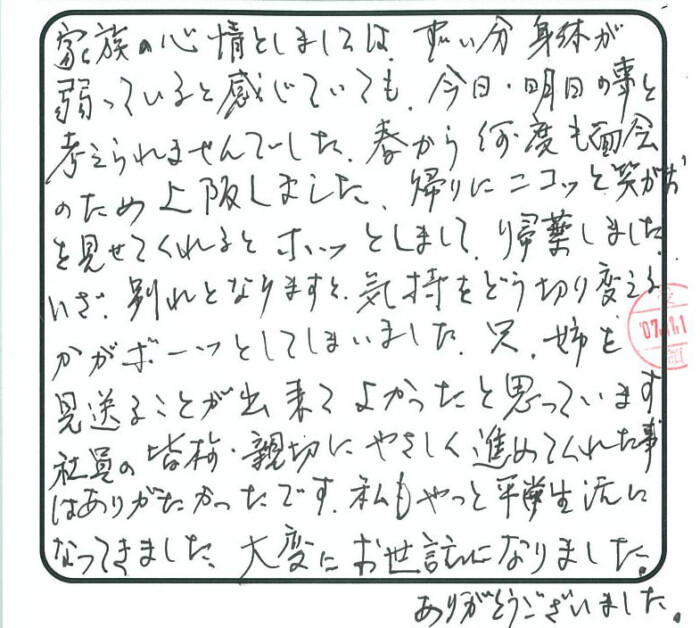 家族の心情としましては、ずい分身体が
弱っていると感じていても、今日・明日の事と
考えられませんでした。春から何度も面会
のため上阪しました。帰りにニコッと笑がお
を見せてくれるとホッとしまして、帰葉しました。
いざ、別れとなりますと、気持をどう切り変える
かがボーッとしてしまいました。兄、姉を
見送ることが出来てよかったと思っています
社員の皆様・親切にやさしく進めてくれた事
はありがたかったです。私もやっと平常生活に
なってきました。大変にお世話になりました。
ありがとうございました。